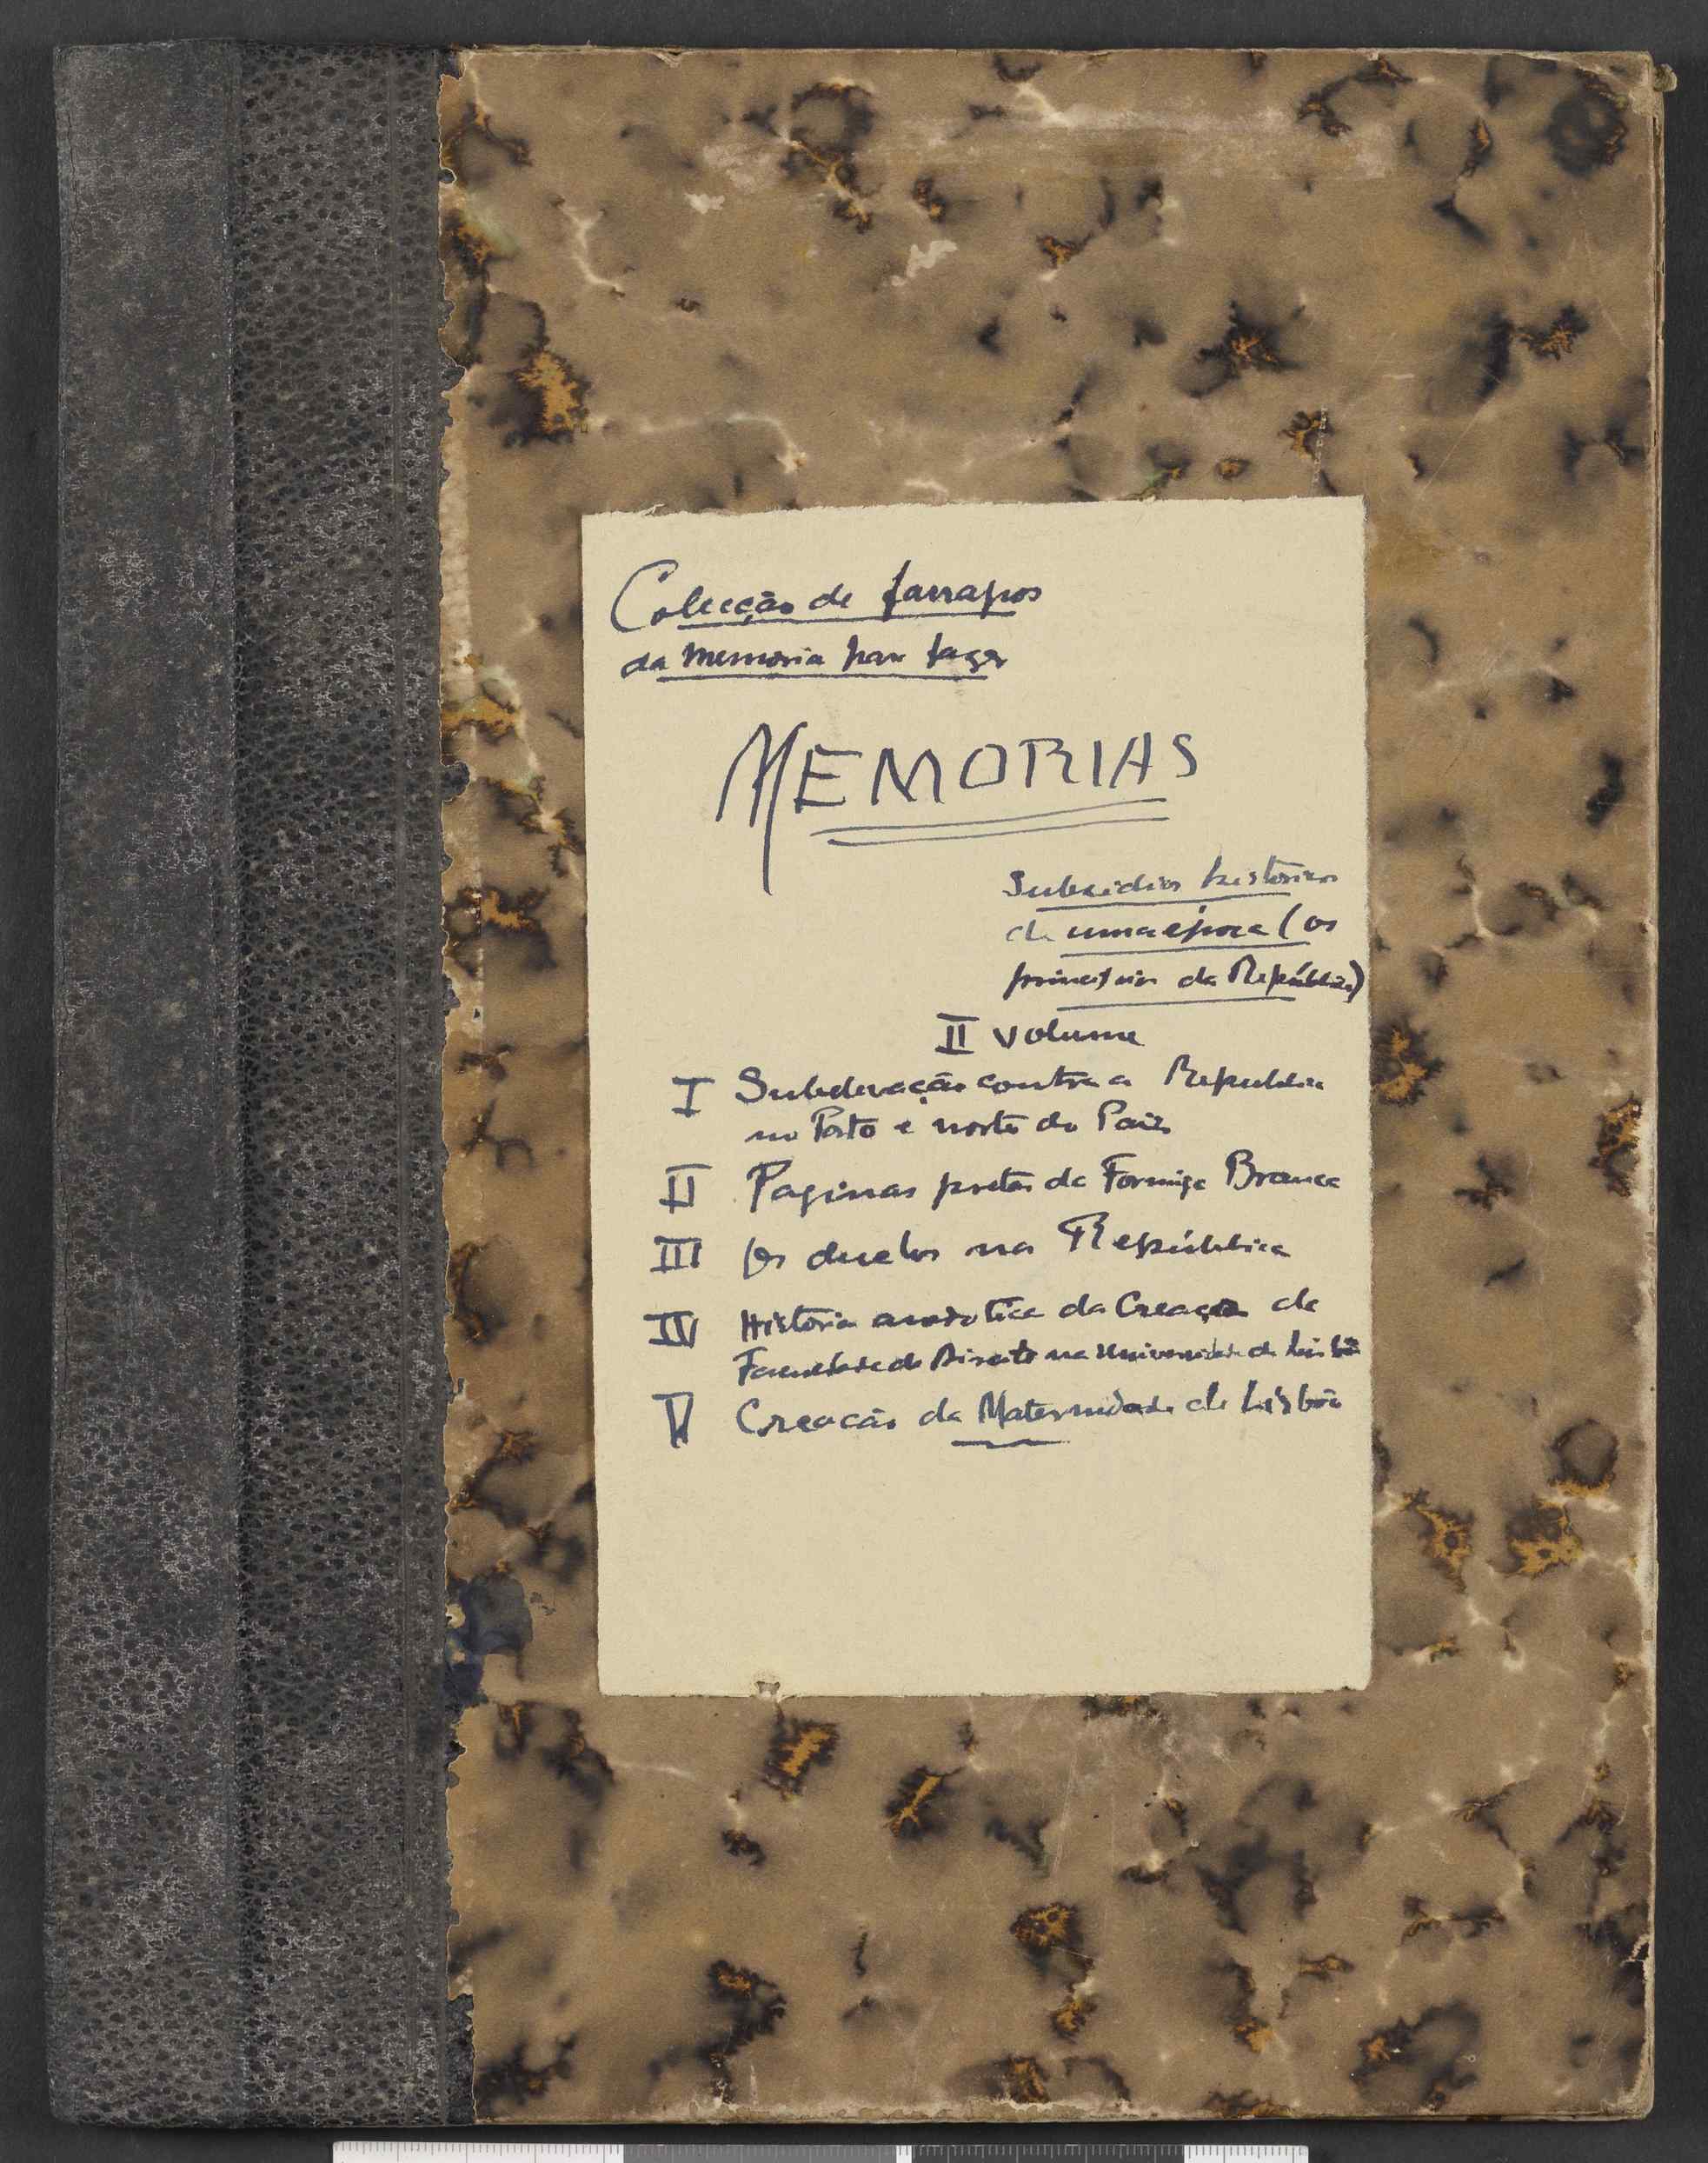 Colecção de farrapos
da memoria para fazer
MEMORIAS
Subsidios historicos
de uma época (os
principios da República)
II Volume
I Sublevação contra a Republica
no Porto e norte do Paiz
II Paginas pretas da Formiga Branca
III Os duelos na República
IV Historia anedotica da Creação da
Faculdade de Direito na Universidade de Lisbôa
V Creacão da Maternidade de Lisbôa